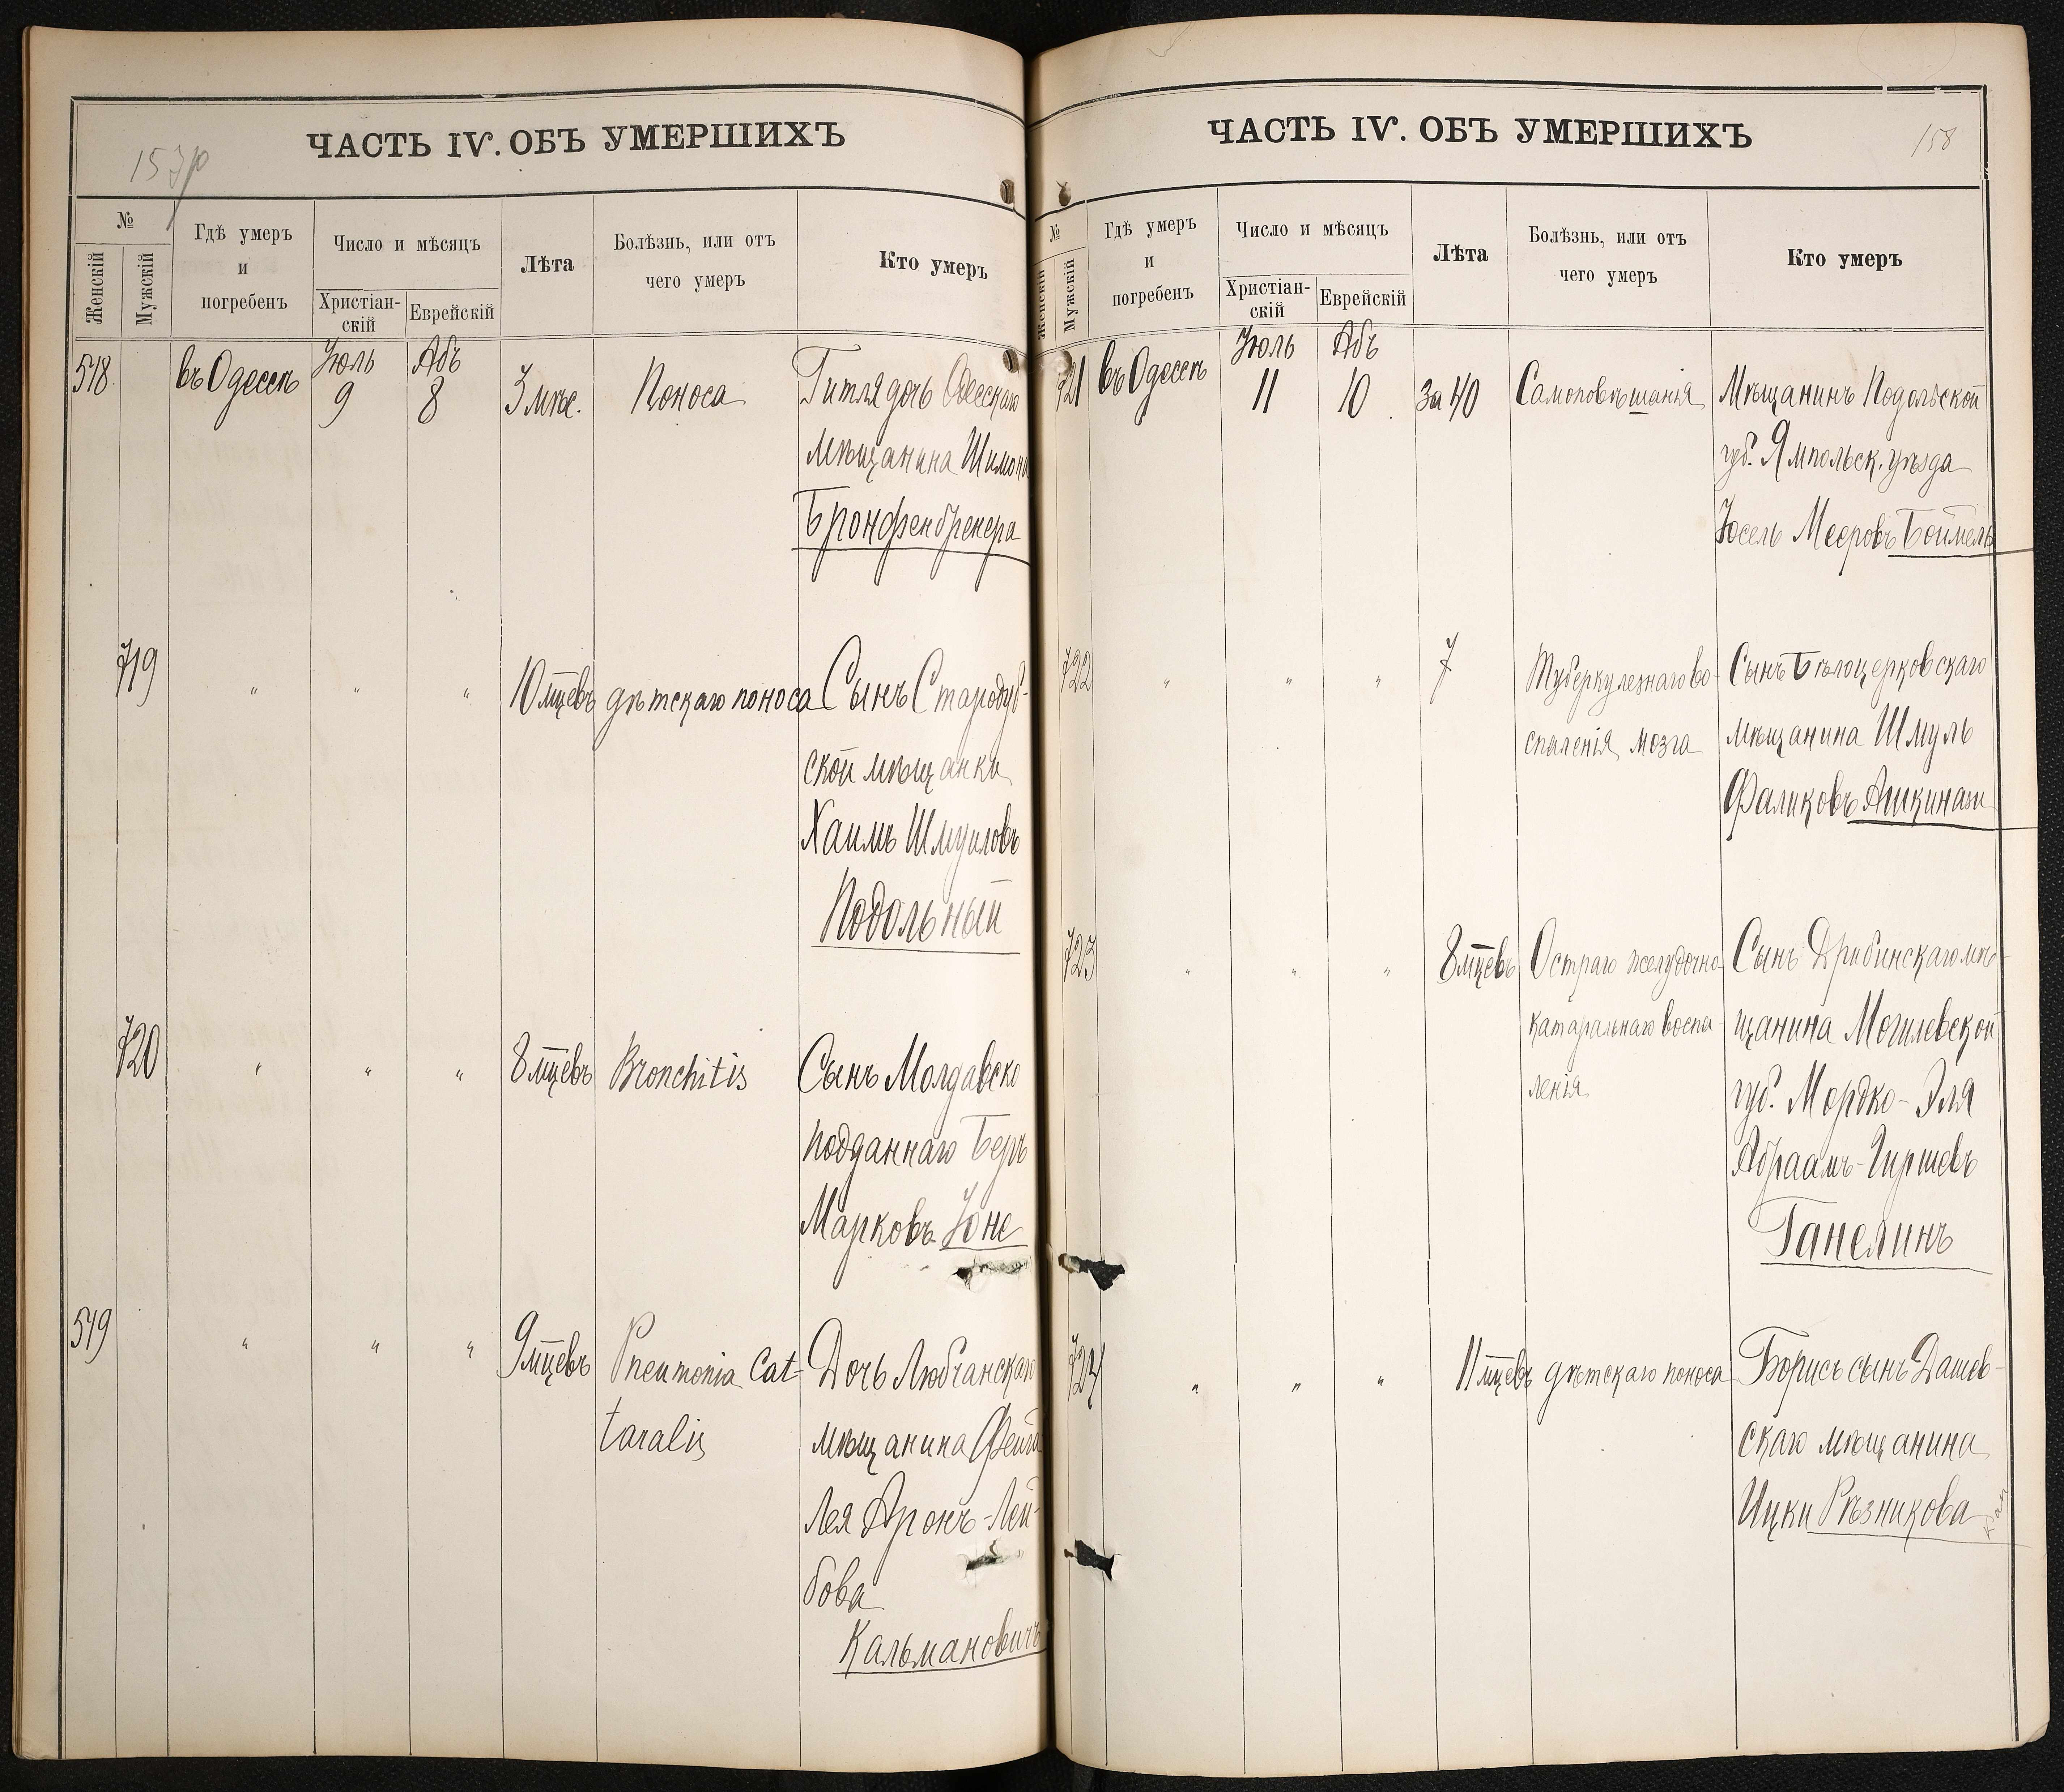 ЧАСТЬ IV. ОБЪ УМЕРШИХЪ
№
Женскій
Мужскій
Гдѣ умеръ
и
погребенъ
Число и мѣсяцъ
Христіан-
скій
Еврейскій
Лѣта
Болѣзнь, или отъ
чего умеръ
Кто умеръ
518.
въ Одессѣ
Іюль
9
Абъ
8
3 мѣс.
Поноса
Гитля дочь Одесскаго
мѣщанина Шимона
Бронфенбренера
719
"
"
"
10 мцевъ
дѣтскаго поноса
Сынъ Стародуб-
ской мѣщанки
Хаимъ Шмуиловъ
Подольный
720
"
"
"
8 мцевъ
Bronchitis
Сынъ Молдавско
подданнаго Беръ
Марковъ Юне
519
"
"
"
9 мцевъ
Pneumonia Cat-
taralis
Дочь Любчанскаго
мѣщанина Фейга
Лея Аронъ-Лей-
бова
Кальмановичъ
ЧАСТЬ IV. ОБЪ УМЕРШИХЪ
158
№
Женскій
Мужскій
Гдѣ умеръ
и
погребенъ
Число и мѣсяцъ
Христіан-
скій
Еврейскій
Лѣта
Болѣзнь, или отъ
чего умеръ
Кто умеръ
721
въ Одессѣ
Іюль
11
Абъ
10
За 40
Самоповѣшанія
Мѣщанинъ Подольской
губ. Ямпольск. уѣзда
Іосель Мееровъ Боймель
722
"
"
"
7
Туберкулезнаго во-
спаленія мозга
Сынъ Бѣлоцерковскаго
мѣщанина Шмуль
Фаликовъ Ашкинази
723
"
"
"
8 мцевъ
Остраго желудочно-
катаральнаго воспа-
ленія
Сынъ Дрибинскаго мѣ-
щанина Могилевской
губ. Мордко-Эля
Абраамъ-Гиршевъ
Ганелинъ
724
"
"
"
11 мцевъ
дѣтскаго поноса
Борисъ сынъ Дашев-
скаго мѣщанина
Ицки Рѣзникова